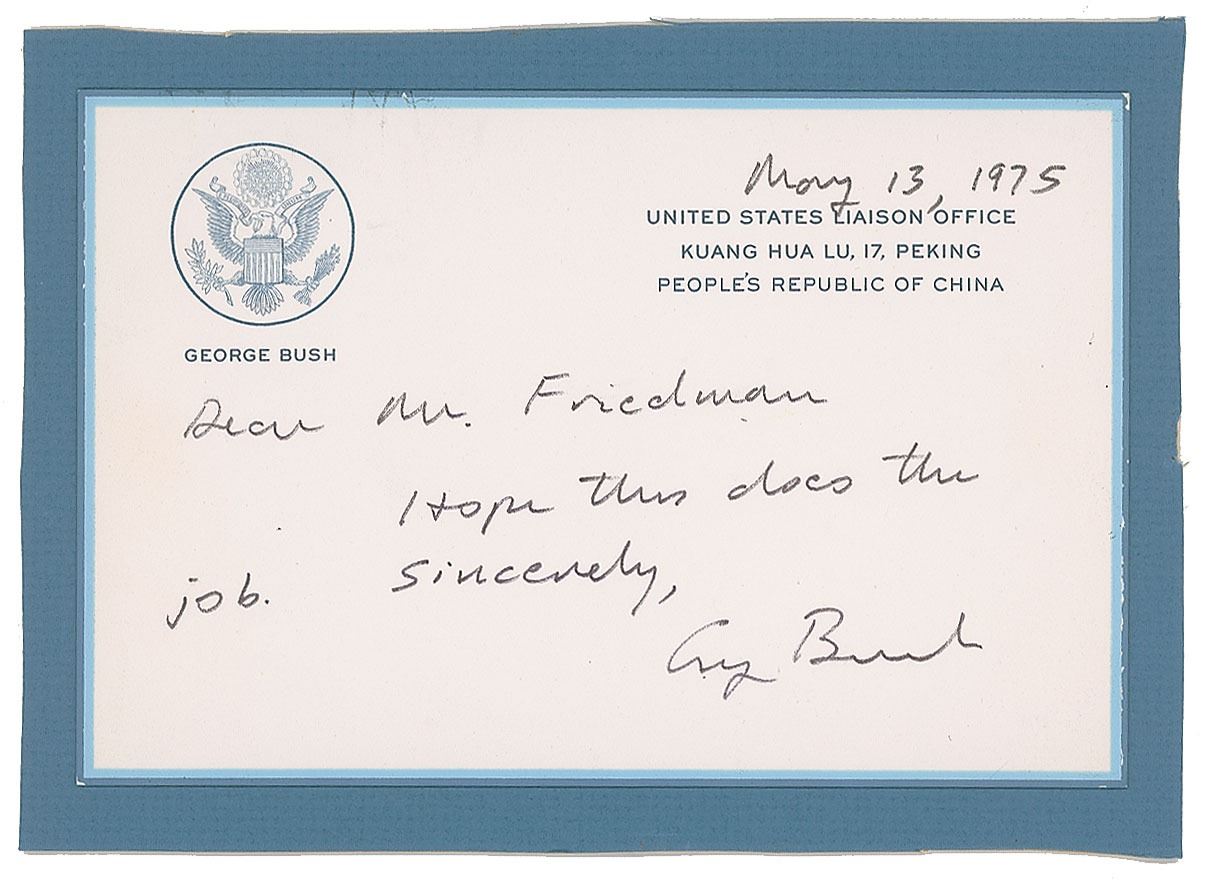 May 13, 1975
UNITED STATES LIAISON OFFICE
KUANG HUA LU, 17, PEKING
PEOPLE'S REPUBLIC OF CHINA
GEORGE BUSH
Dear Mr. Friedman
Hope this does the
job. Sincerely,
Bush